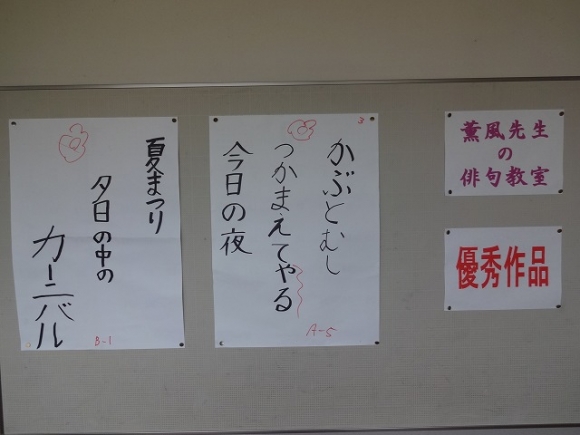 薫風先生
の
俳句教室
優秀作品
かぶとむし
つかまえてやる
今日の夜
A-5
夏まつり
夕日の中の
カーニバル
B-1